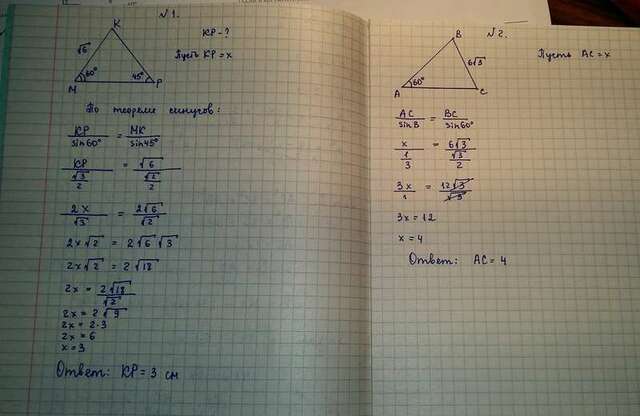 №1.
K
√6
60°
45°
M
P
KP - ?
Пусть KP = x
По теореме синусов:
KP/sin60° = MK/sin45°
KP/(√3/2) = √6/(√2/2)
2x/√3 = 2√6/√2
2x√2 = 2√6 √3
2x√2 = 2√18
2x = 2√18/√2
2x = 2√9
2x = 2·3
2x = 6
x = 3
Ответ: KP = 3 см
№2.
B
6√3
60°
A
C
Пусть AC = x
AC/sinB = BC/sin60°
x/(1/3) = 6√3/(√3/2)
3x/1 = 12√3/√3
3x = 12
x = 4
Ответ: AC = 4